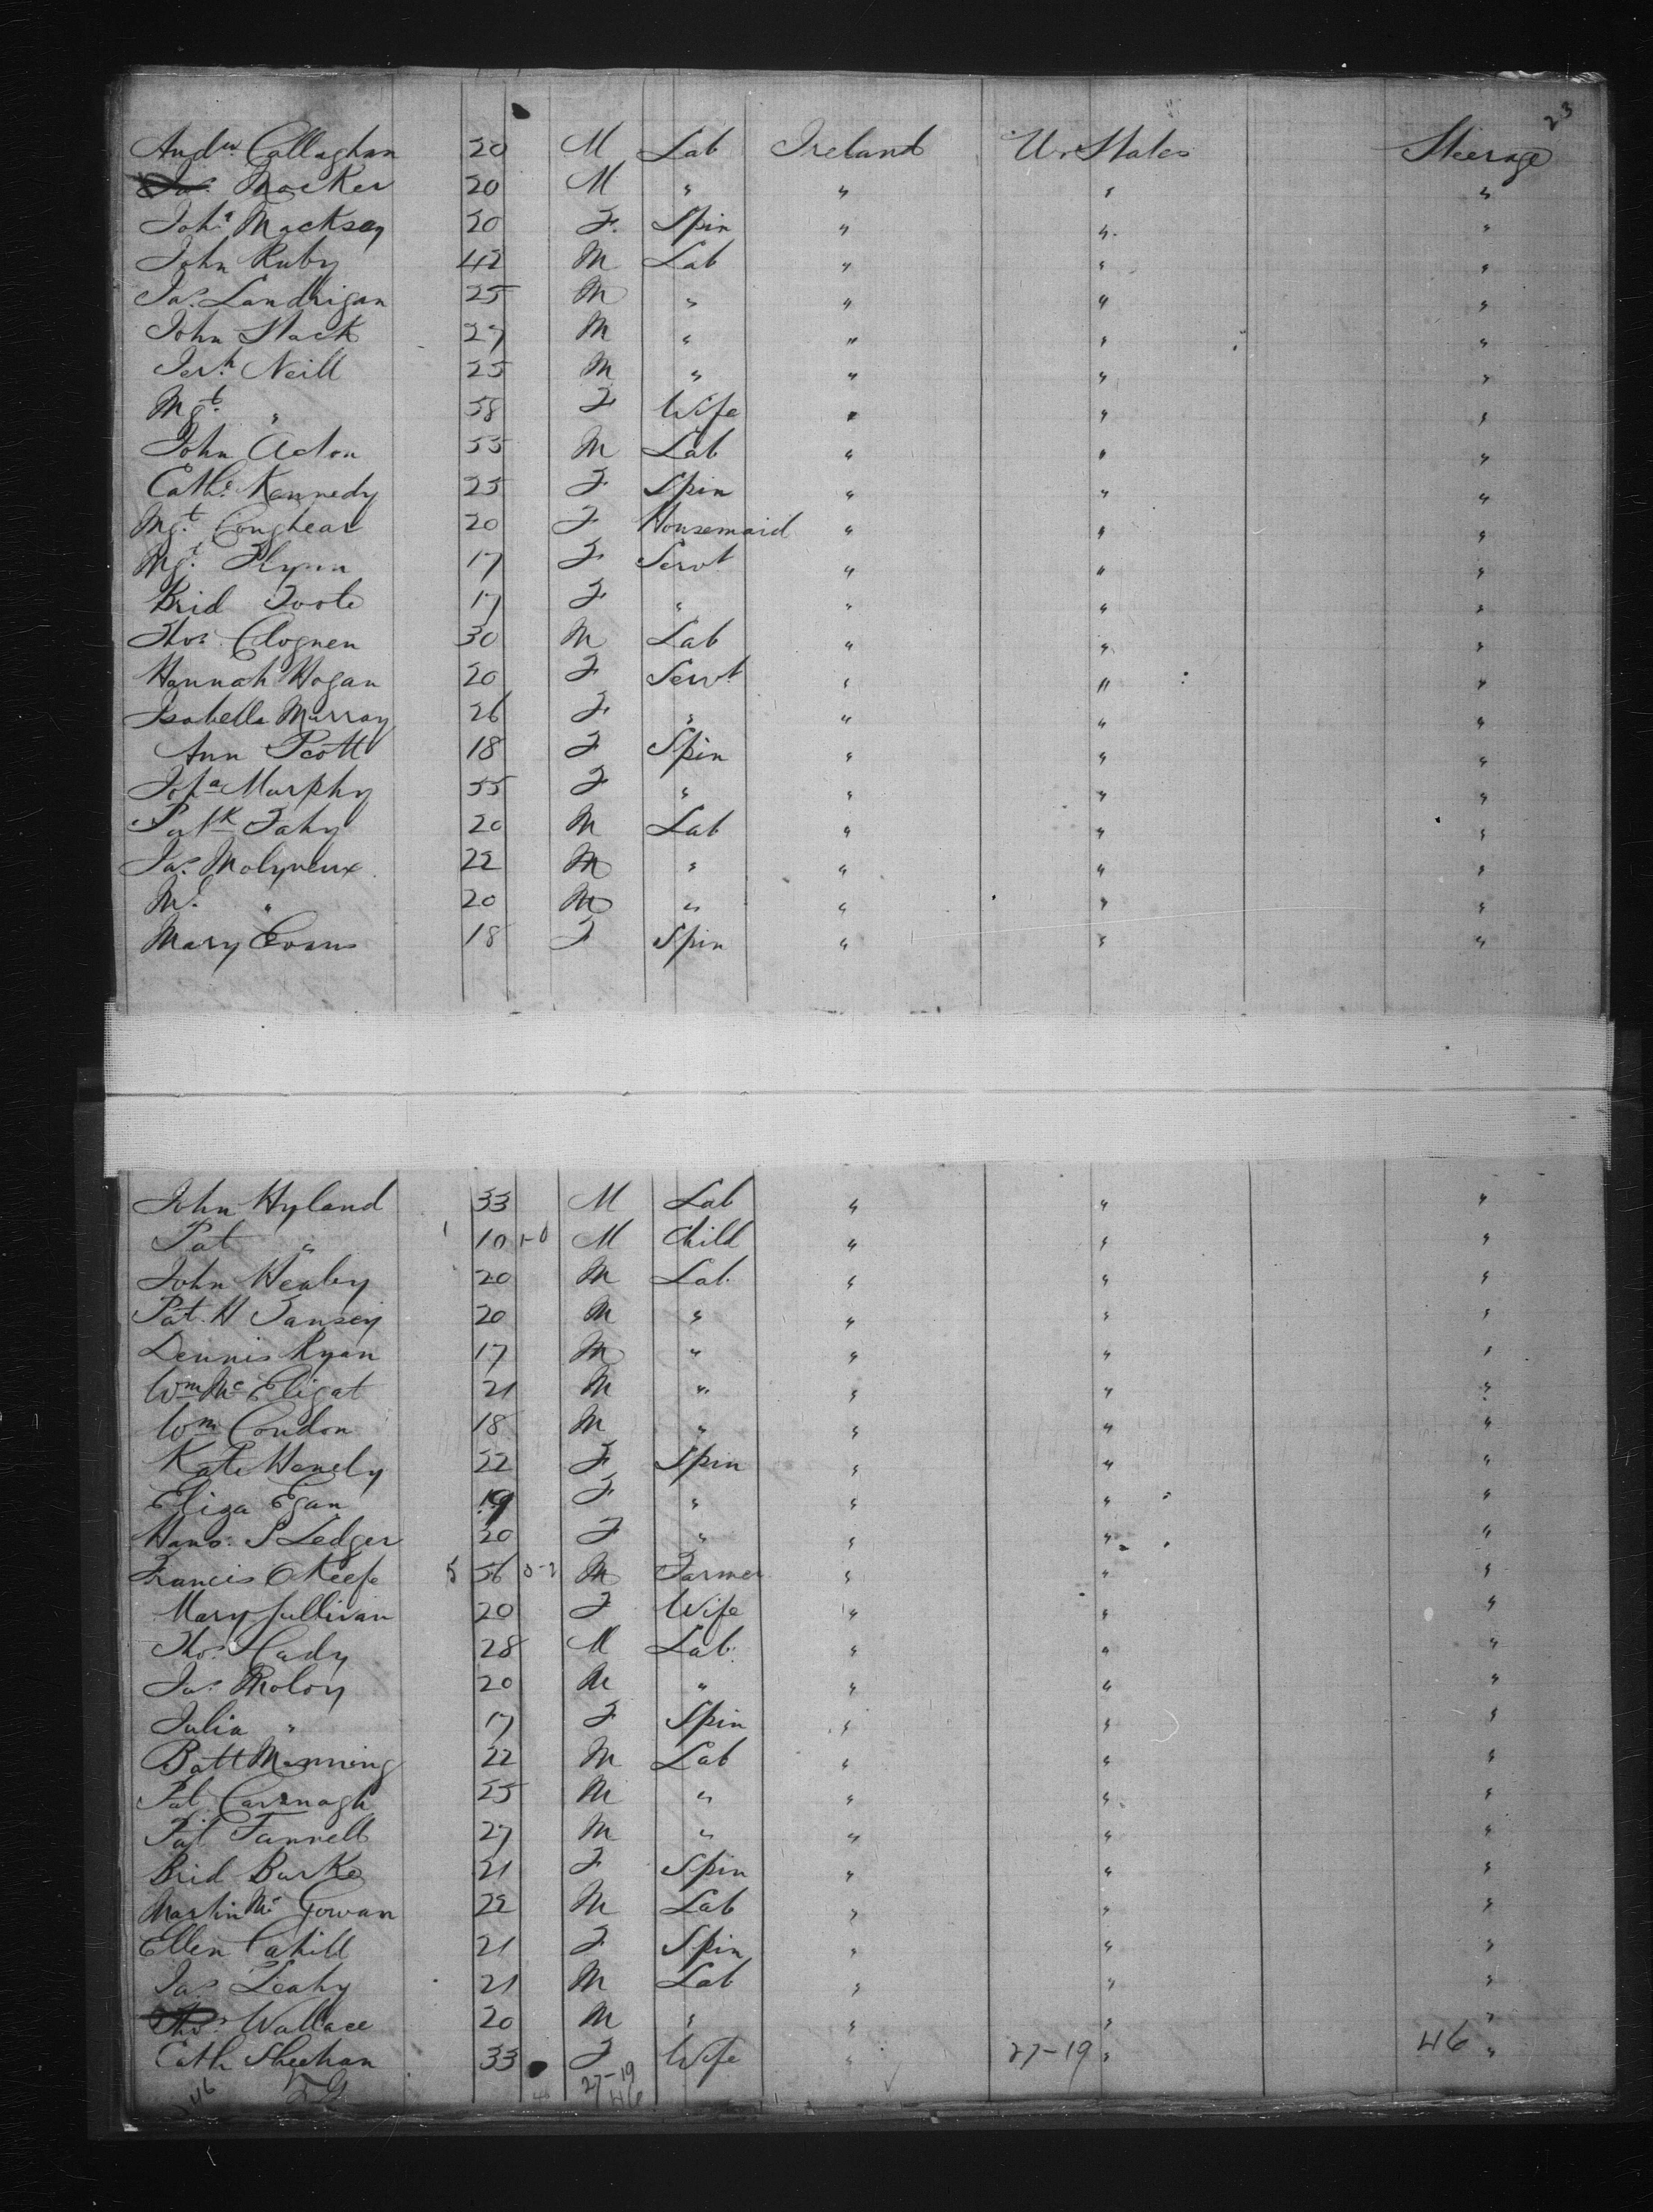 23
Andw. Callaghan 20 M Lab Ireland U. States Steerage
Macker 20 M " " " "
Joha Macksey 20 F. Spin " " "
John Ruby 42 M Lab " " "
Jas. Landrigan 25 M " " " "
John Stack 27 M " " " "
Jerh Neill 25 M " " " "
Mgt. " 58 F Wife " " "
John Acton 55 M Lab " " "
Cath. Kennedy 25 F Spin " " "
Mgt. 20 F Housemaid " " "
Mgt. Flynn 17 F Servt " " "
Brid Toole 17 F " " " "
Thos. Clognen 30 M Lab " " "
Hannah Hogan 20 F Servt " " "
Isabella Murray 26 F " " " "
Ann Scott 18 F Spin " " "
Joha Murphy 55 F " " " "
Patk Fahy 20 M Lab " " "
Jas. Molyneux 22 M " " " "
Ml. " 20 M " " " "
Mary Evans 18 F Spin " " "
John Hyland 33 M Lab " " "
Pat " 1 10 1-0 M Child " " "
John Healey 20 M Lab. " " "
Pat. H Tansey 20 M " " " "
Dennis Ryan 17 M " " " "
Wm Mc Eligat 21 M " " " "
Wm Condon 18 M " " " "
Kate Hanely 22 F Spin " " "
Eliza Egan 19 F " " " "
Hano. S Ledger 20 F " " " "
Francis O Keefe 5 56 M Farmer " " "
Mary Sullivan 20 F Wife " " "
Thos. Cady 28 M Lab. " " "
Jas. Moloy 20 M " " " "
Julia " 17 F Spin " " "
Batt Manning 22 M Lab " " "
Pat Cavanagh 25 M " " " "
Pat Fannell 27 M " " " "
Brid Burke 21 F Spin " " "
Martin Mc Gowan 22 M Lab " " "
Ellen Cahill 21 F Spin " " "
Jas Leahy 21 M Lab " " "
Thos. Wallace 20 M " " " "
Cath Sheehan 33 F Wife " 27-19 " 46 "
46 27-19
46